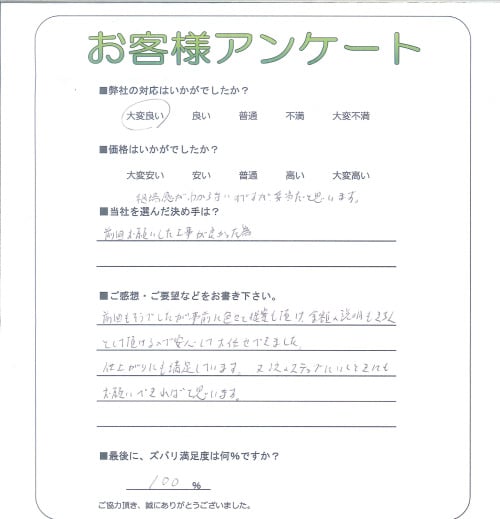 お客様アンケート
■弊社の対応はいかがでしたか？
大変良い 良い 普通 不満 大変不満
■価格はいかがでしたか？
大変安い 安い 普通 高い 大変高い
相場感がわからないですが妥当だと思います。
■当社を選んだ決め手は？
前回お願いした工事が良かった為
■ご感想・ご要望などをお書き下さい。
前回もそうでしたが事前に色々と提案も頂け、金額の説明もきちん
として頂けるので安心してお任せできました。
仕上がりにも満足しています。又次のステップに
お願いできればと思います。
■最後に、ズバリ満足度は何％ですか？
100 ％
ご協力頂き、誠にありがとうございました。